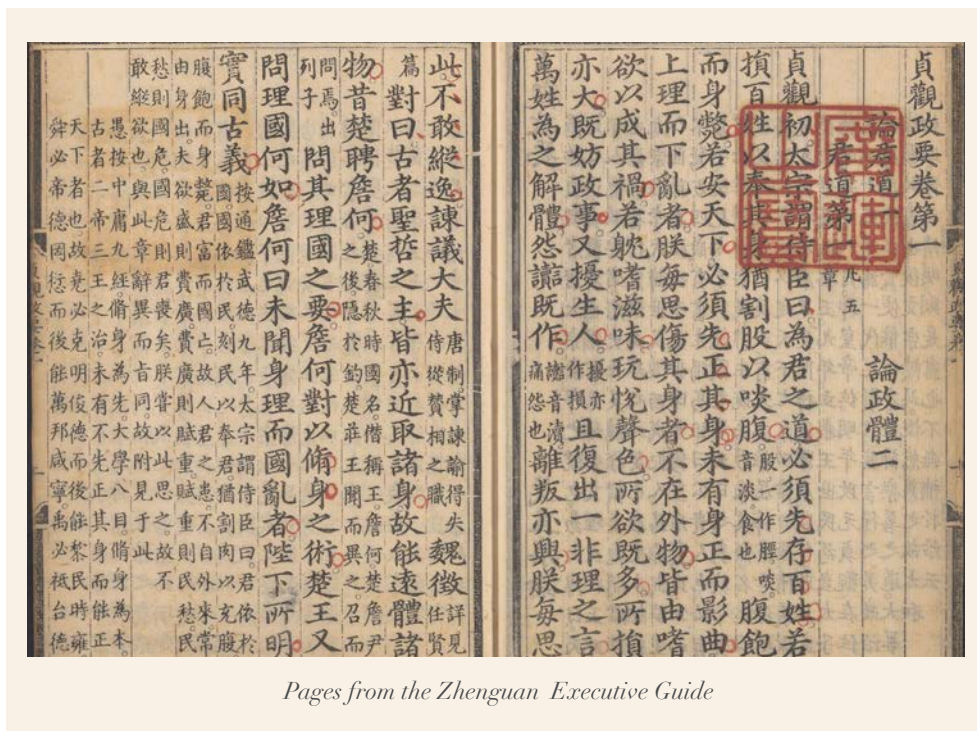 貞觀政要卷第一
論君道一 論政體二
君道第一 凡五章
貞觀初太宗謂侍臣曰為君之道必須先存百姓若
損百姓以奉其身猶割股以啖腹股一作脛啖音淡食也腹飽
而身斃若安天下必須先正其身未有身正而影曲
上理而下亂者朕每思傷其身者不在外物皆由嗜
欲以成其禍若躭嗜滋味玩悅聲色所欲既多所損
亦大既妨政事又擾生人擾亦作損且復出一非理之言
萬姓為之解體怨讟既作讟音瀆痛怨也離叛亦興朕每思
此不敢縱逸諫議大夫唐制掌諫諭得失侍從贊相之職魏徵詳見任賢
篇對曰古者聖哲之主皆亦近取諸身故能遠體諸
物昔楚聘詹何楚春秋時國名僭稱王詹何楚詹尹之後隱於釣楚莊王聞而異之召而
問焉出列子問其理國之要詹何對以脩身之術楚王又
問理國何如詹何曰未聞身理而國亂者陛下所明
實同古義按通鑑武德九年太宗謂侍臣曰君依於國國依於民刻民以奉君猶割肉以充腹
腹飽而身斃君富而國亡故人君之患不自外來常由身出夫欲盛則費廣費廣則賦重賦重則民愁民
愁則國危國危則君喪矣朕嘗以此思之故不敢縱欲也與此章辭異而旨同故附見于此
愚按中庸九經脩身為先大學八目脩身為本古者二帝三王之治未有不先正其身而能正
天下者也故堯必克明俊德而後能黎民時雍舜必帝德罔愆而後能萬邦咸寧禹必祗台德
Pages from the Zhenguan Executive Guide